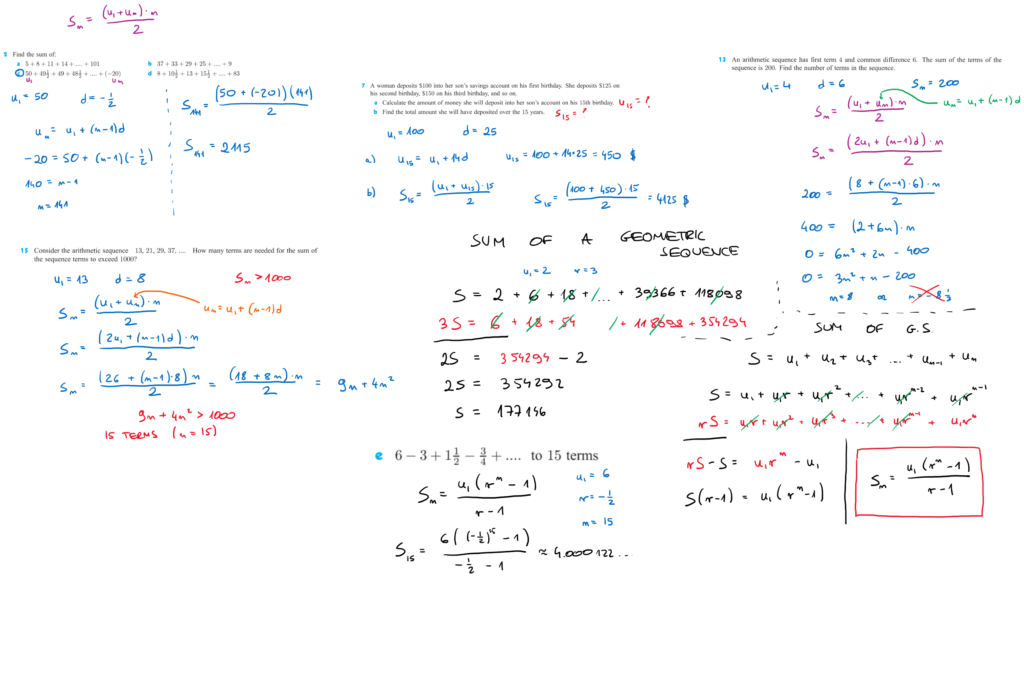 Sₙ = (u₁+uₙ)·n / 2
2 Find the sum of:
a 5 + 8 + 11 + 14 + .... + 101
b 37 + 33 + 29 + 25 + .... + 9
c 50 + 49½ + 49 + 48½ + .... + (−20)
d 8 + 10½ + 13 + 15½ + .... + 83
u₁ uₙ
u₁ = 50 d = −1/2
uₙ = u₁ + (n−1)d
−20 = 50 + (n−1)(−1/2)
140 = n−1
n = 141
S₁₄₁ = (50 + (−20))(141) / 2
S₁₄₁ = 2115
7 A woman deposits $100 into her son's savings account on his first birthday. She deposits $125 on
his second birthday, $150 on his third birthday, and so on.
a Calculate the amount of money she will deposit into her son's account on his 15th birthday. u₁₅ = ?
b Find the total amount she will have deposited over the 15 years. S₁₅ = ?
u₁ = 100 d = 25
a) u₁₅ = u₁ + 14d u₁₅ = 100 + 14·25 = 450 $
b) S₁₅ = (u₁ + u₁₅)·15 / 2 S₁₅ = (100 + 450)·15 / 2 = 4125 $
13 An arithmetic sequence has first term 4 and common difference 6. The sum of the terms of the
sequence is 200. Find the number of terms in the sequence.
u₁ = 4 d = 6 Sₙ = 200
Sₙ = (u₁ + uₙ)·n / 2 uₙ = u₁ + (n−1)d
Sₙ = (2u₁ + (n−1)d)·n / 2
200 = (8 + (n−1)·6)·n / 2
400 = (2+6n)·n
0 = 6n² + 2n − 400
0 = 3n² + n − 200
n = 8 or n = −8 1/3
15 Consider the arithmetic sequence 13, 21, 29, 37, .... How many terms are needed for the sum of
the sequence terms to exceed 1000?
u₁ = 13 d = 8 Sₙ > 1000
Sₙ = (u₁ + uₙ)·n / 2 uₙ = u₁ + (n−1)d
Sₙ = (2u₁ + (n−1)d)·n / 2
Sₙ = (26 + (n−1)·8)n / 2 = (18 + 8n)·n / 2 = 9n + 4n²
9n + 4n² > 1000
15 TERMS (n = 15)
SUM OF A GEOMETRIC
SEQUENCE
u₁ = 2 r = 3
S = 2 + 6 + 18 + ... + 39366 + 118098
3S = 6 + 18 + 54 / + 118098 + 354294
2S = 354294 − 2
2S = 354292
S = 177146
e 6 − 3 + 1½ − ¾ + .... to 15 terms
Sₙ = u₁(rⁿ − 1) / r−1
u₁ = 6
r = −1/2
n = 15
S₁₅ = 6((−1/2)¹⁵ − 1) / −1/2 − 1 ≈ 4.000122...
SUM OF G.S.
S = u₁ + u₂ + u₃ + ... + uₙ₋₁ + uₙ
S = u₁ + u₁r + u₁r² + ... + u₁rⁿ⁻² + u₁rⁿ⁻¹
rS = u₁r + u₁r² + u₁r³ + ... + u₁rⁿ⁻¹ + u₁rⁿ
rS − S = u₁rⁿ − u₁
S(r−1) = u₁(rⁿ−1)
Sₙ = u₁(rⁿ−1) / r−1